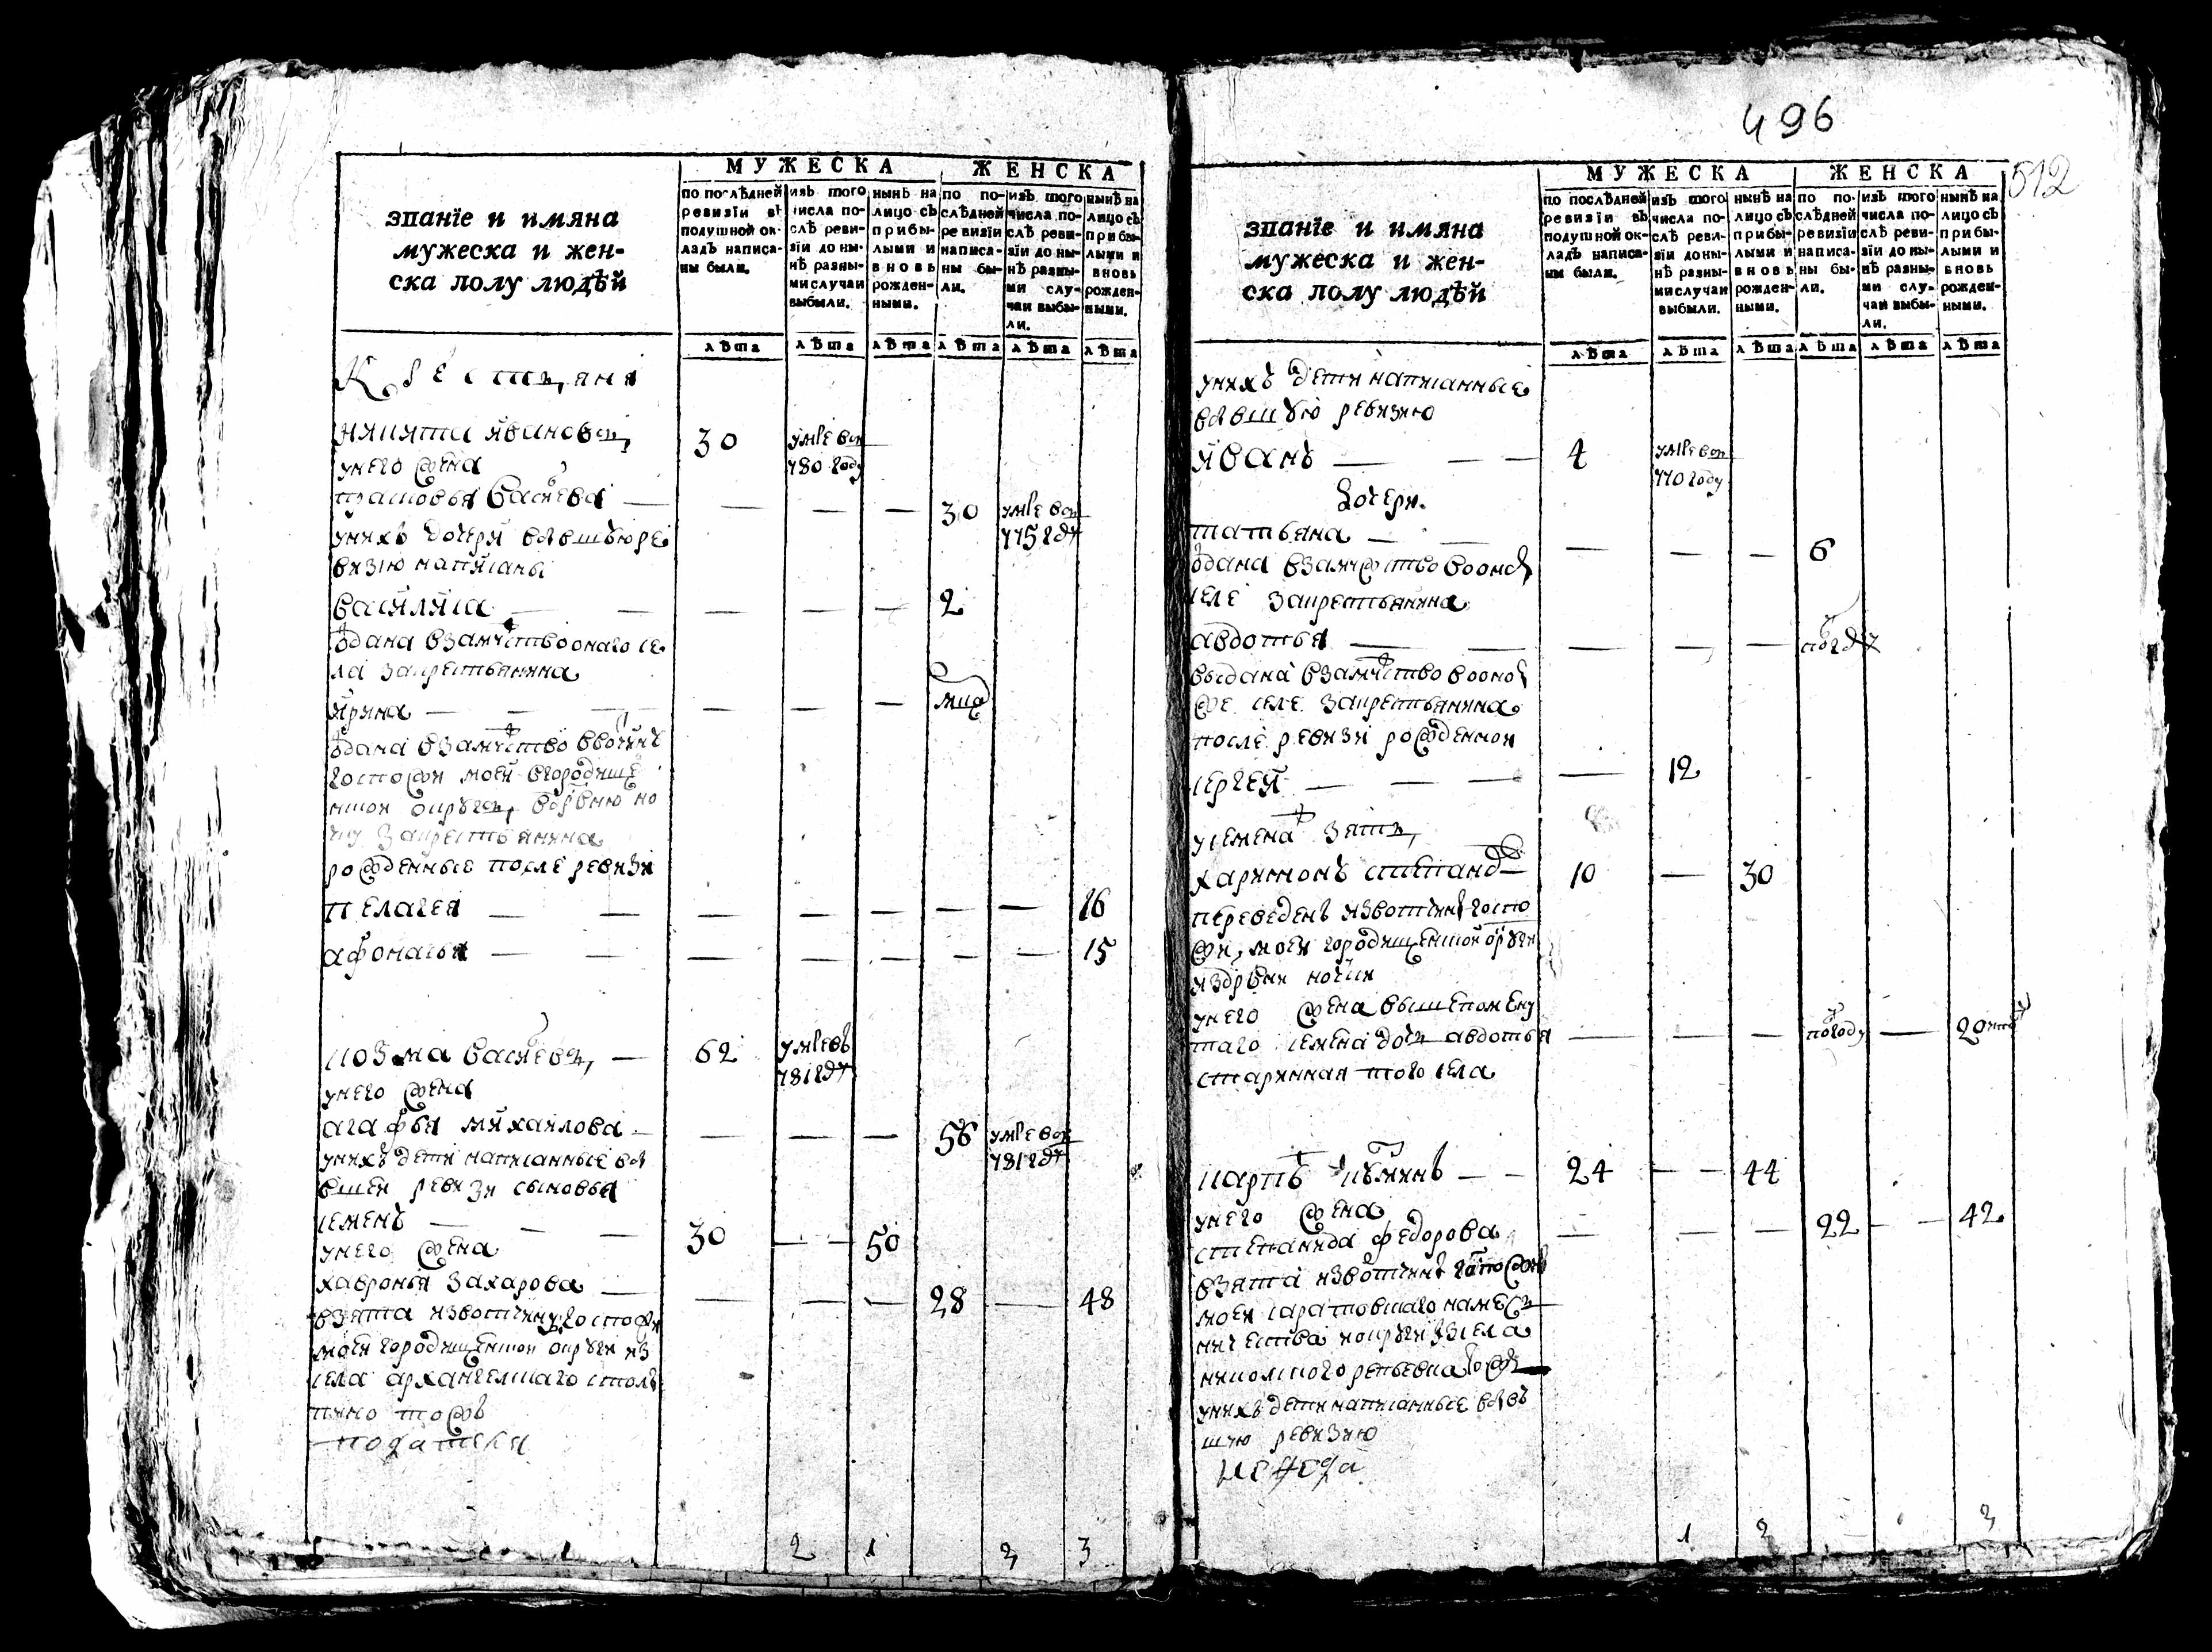 МУЖЕСКА ЖЕНСКА
званїе и имяна
мужеска и жен-
ска полу людѣй
по послѣдней
ревизїи въ
подушной ок-
ладъ написа-
ны были.
изъ того
числа по-
слѣ реви-
зїи до ны-
нѣ разны-
ми случаи
выбыли.
нынѣ на
лицо съ
прибы-
лыми и
вновь
рожден-
ными.
по по-
слѣдней
ревизїи
написа-
ны бы-
ли.
изъ того
числа по-
слѣ реви-
зїи до ны-
нѣ разны-
ми слу-
чаи выбы-
ли.
нынѣ на
лицо съ
прибы-
лыми и
вновь
рожден-
ными.
лѣта лѣта лѣта лѣта лѣта лѣта
Крестьяня
никита ивановъ 30 умре въ
780 году
у него жена
прасковья васильева — — — — 30 умре въ
775 году
у нихъ дочери в бывшую ре
визию написаны
василиса — — — — — 2
отдана взамужство оного се
ла за крестьянина
ирина — — — — — —
отдана взамужство в вотчину
госпожи моей в городище
за крестьянина
рожденные после ревизи
пелагея — — — — — — — 16
афонасья — — — — — — — 15
козма васильевъ — 62 умре въ
781 году
у него жена
агафья михаилова — — — — 56 умре въ
781 году
у нихъ дети написанные в бы
вшей ревизи сыновья
семенъ — — — 30 — — 50
у него жена
хавронья захарова — — — — 28 — 48
взята из вотчины госпожи
моей городищенской округи из
села архангелскаго
тожъ
2 1 2 3
496
512
МУЖЕСКА ЖЕНСКА
званїе и имяна
мужеска и жен-
ска полу людѣй
по послѣдней
ревизїи въ
подушной ок-
ладъ написа-
ны были.
изъ того
числа по-
слѣ реви-
зїи до ны-
нѣ разны-
ми случаи
выбыли.
нынѣ на
лицо съ
прибы-
лыми и
вновь
рожден-
ными.
по по-
слѣдней
ревизїи
написа-
ны бы-
ли.
изъ того
числа по-
слѣ реви-
зїи до ны-
нѣ разны-
ми слу-
чаи выбы-
ли.
нынѣ на
лицо съ
прибы-
лыми и
вновь
рожден-
ными.
лѣта лѣта лѣта лѣта лѣта лѣта
у нихъ дети написанные
в бывшую ревизию
иванъ — — — 4 умре въ
770 году
дочери.
татьяна — — — — — 6
отдана взамужство в оном
селе за крестьянина
авдотья — — — — —
выдана взамужство в оном
же селе за крестьянина
после ревизи рожденной
сергей — — — — 12
у семена зять
харитонъ степановъ — 10 — 30
переведенъ из вотчины госпо
жи моей городищенской округи
из дрвни
у него жена вышепомену
таго семена дочь авдотья — — — — 20
старинная того села
карпъ — — 24 — — 44
у него жена
степанида федорова — — — 22 — — 42
взята из вотчины госпожи
моей саратовскаго намес
ничества округи из села
никольского репьевка тожъ
у нихъ дети написанные в быв
шую ревизию
1 2 2